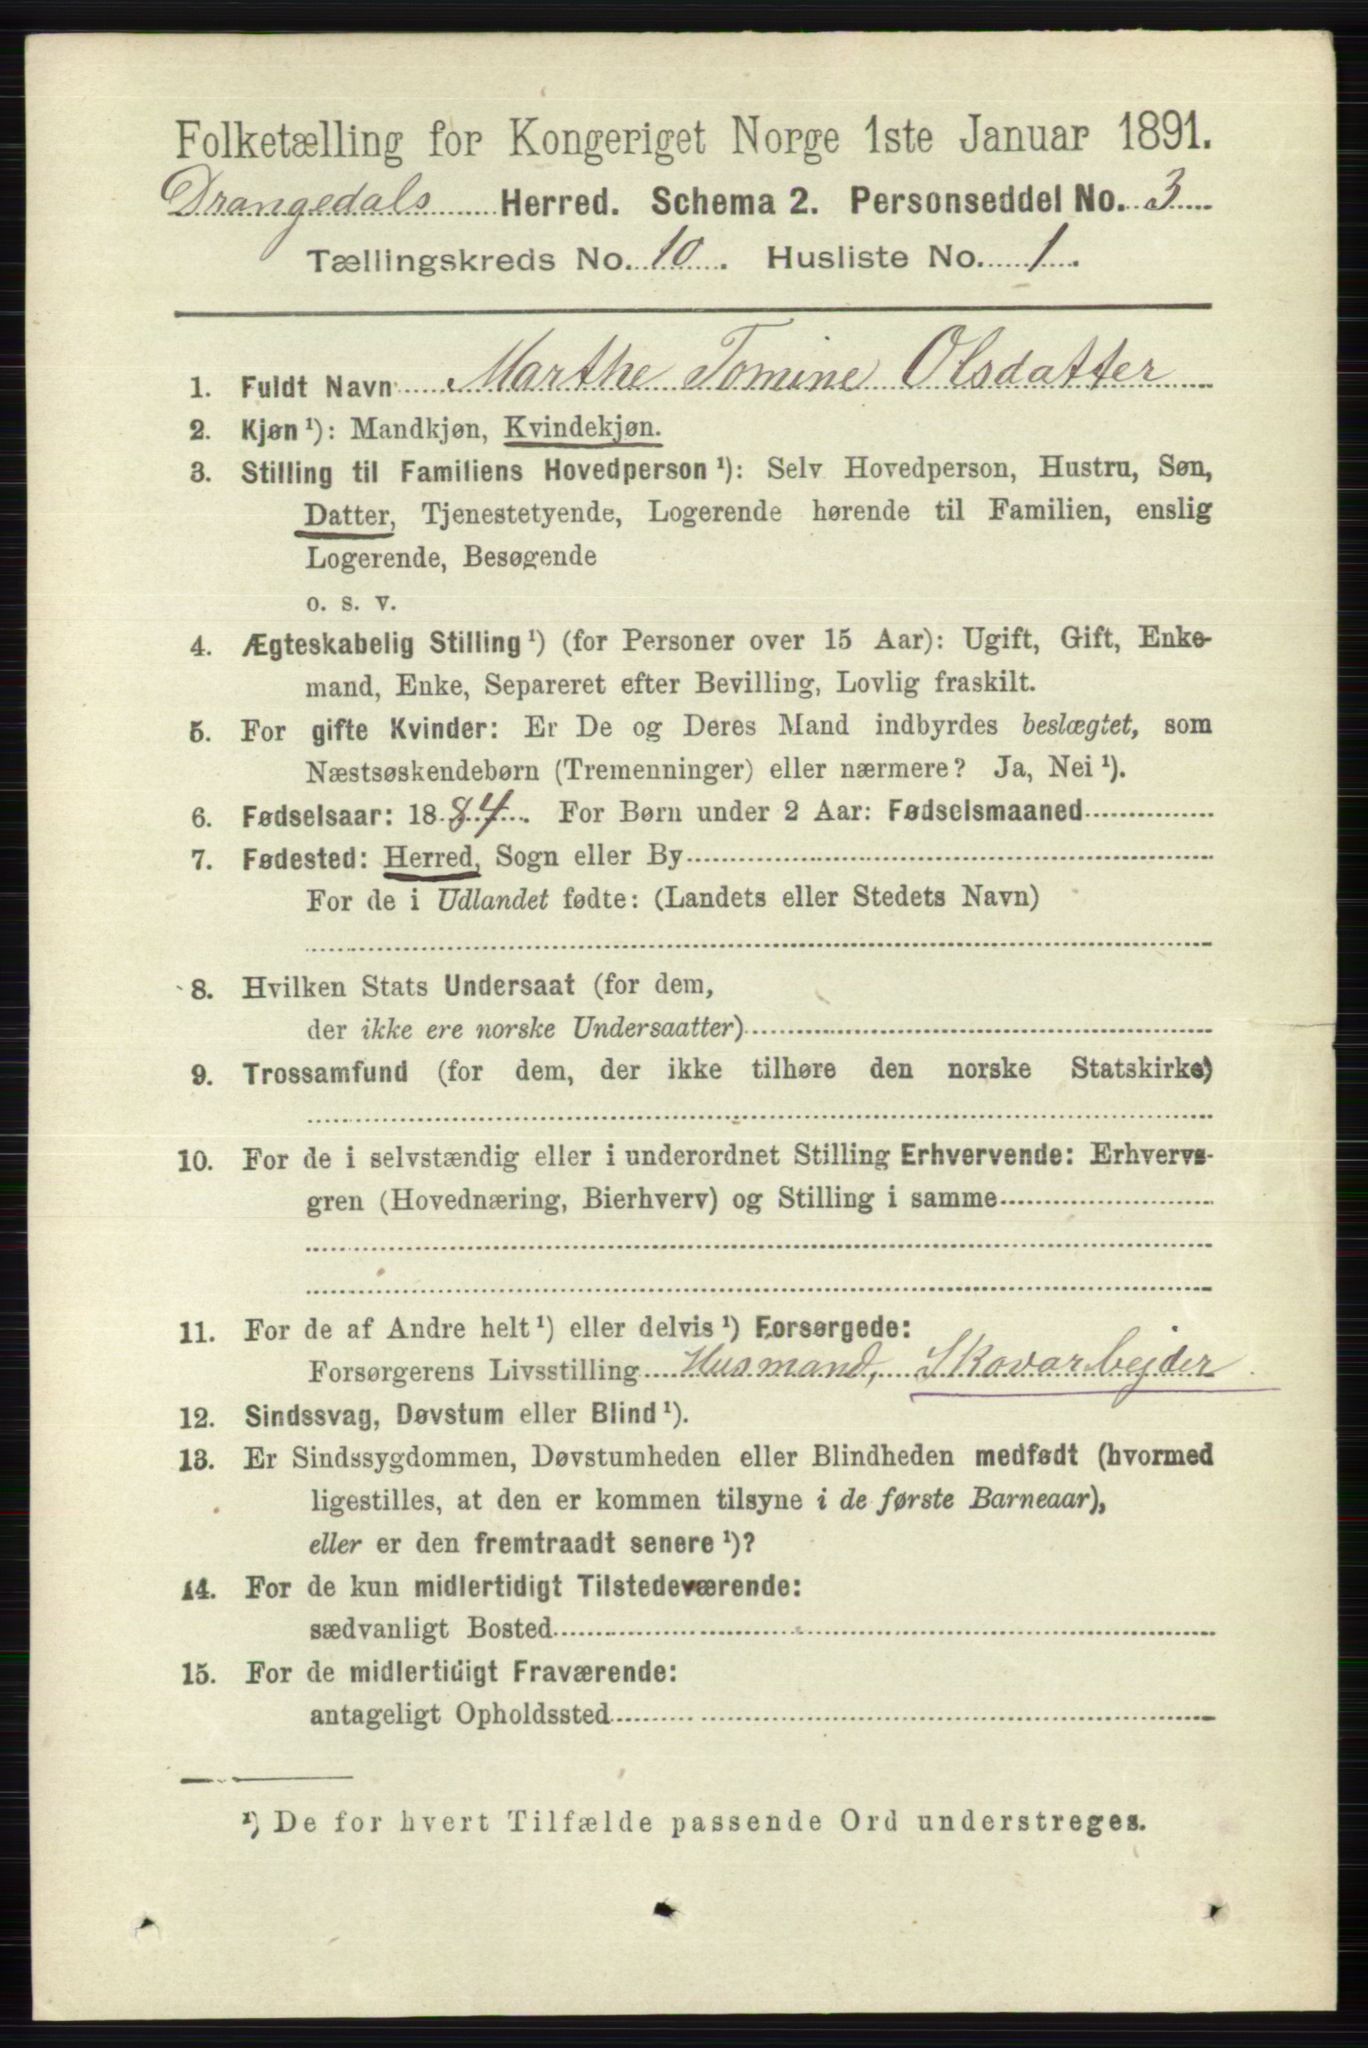 Folketælling for Kongeriget Norge 1ste Januar 1891.
Drangedals Herred. Schema 2. Personseddel No. 3
Tællingskreds No. 10. Husliste No. 1.
1. Fuldt Navn Marthe Tomine Olsdatter
2. Kjøn ¹): Mandkjøn, Kvindekjøn.
3. Stilling til Familiens Hovedperson ¹): Selv Hovedperson, Hustru, Søn,
Datter, Tjenestetyende, Logerende hørende til Familien, enslig
Logerende, Besøgende
o. s. v.
4. Ægteskabelig Stilling ¹) (for Personer over 15 Aar): Ugift, Gift, Enke-
mand, Enke, Separeret efter Bevilling, Lovlig fraskilt.
5. For gifte Kvinder: Er De og Deres Mand indbyrdes beslægtet, som
Næstsøskendebørn (Tremenninger) eller nærmere? Ja, Nei ¹).
6. Fødselsaar: 1884. For Børn under 2 Aar: Fødselsmaaned
7. Fødested: Herred, Sogn eller By
For de i Udlandet fødte: (Landets eller Stedets Navn)
8. Hvilken Stats Undersaat (for dem,
der ikke ere norske Undersaatter)
9. Trossamfund (for dem, der ikke tilhøre den norske Statskirke)
10. For de i selvstændig eller i underordnet Stilling Erhvervende: Erhvervs-
gren (Hovednæring, Bierhverv) og Stilling i samme
11. For de af Andre helt ¹) eller delvis ¹) Forsørgede:
Forsørgerens Livsstilling Husmand, Skovarbejder
12. Sindssvag, Døvstum eller Blind ¹).
13. Er Sindssygdommen, Døvstumheden eller Blindheden medfødt (hvormed
ligestilles, at den er kommen tilsyne i de første Barneaar),
eller er den fremtraadt senere ¹)?
14. For de kun midlertidigt Tilstedeværende:
sædvanligt Bosted
15. For de midlertidigt Fraværende:
antageligt Opholdssted
¹) De for hvert Tilfælde passende Ord understreges.